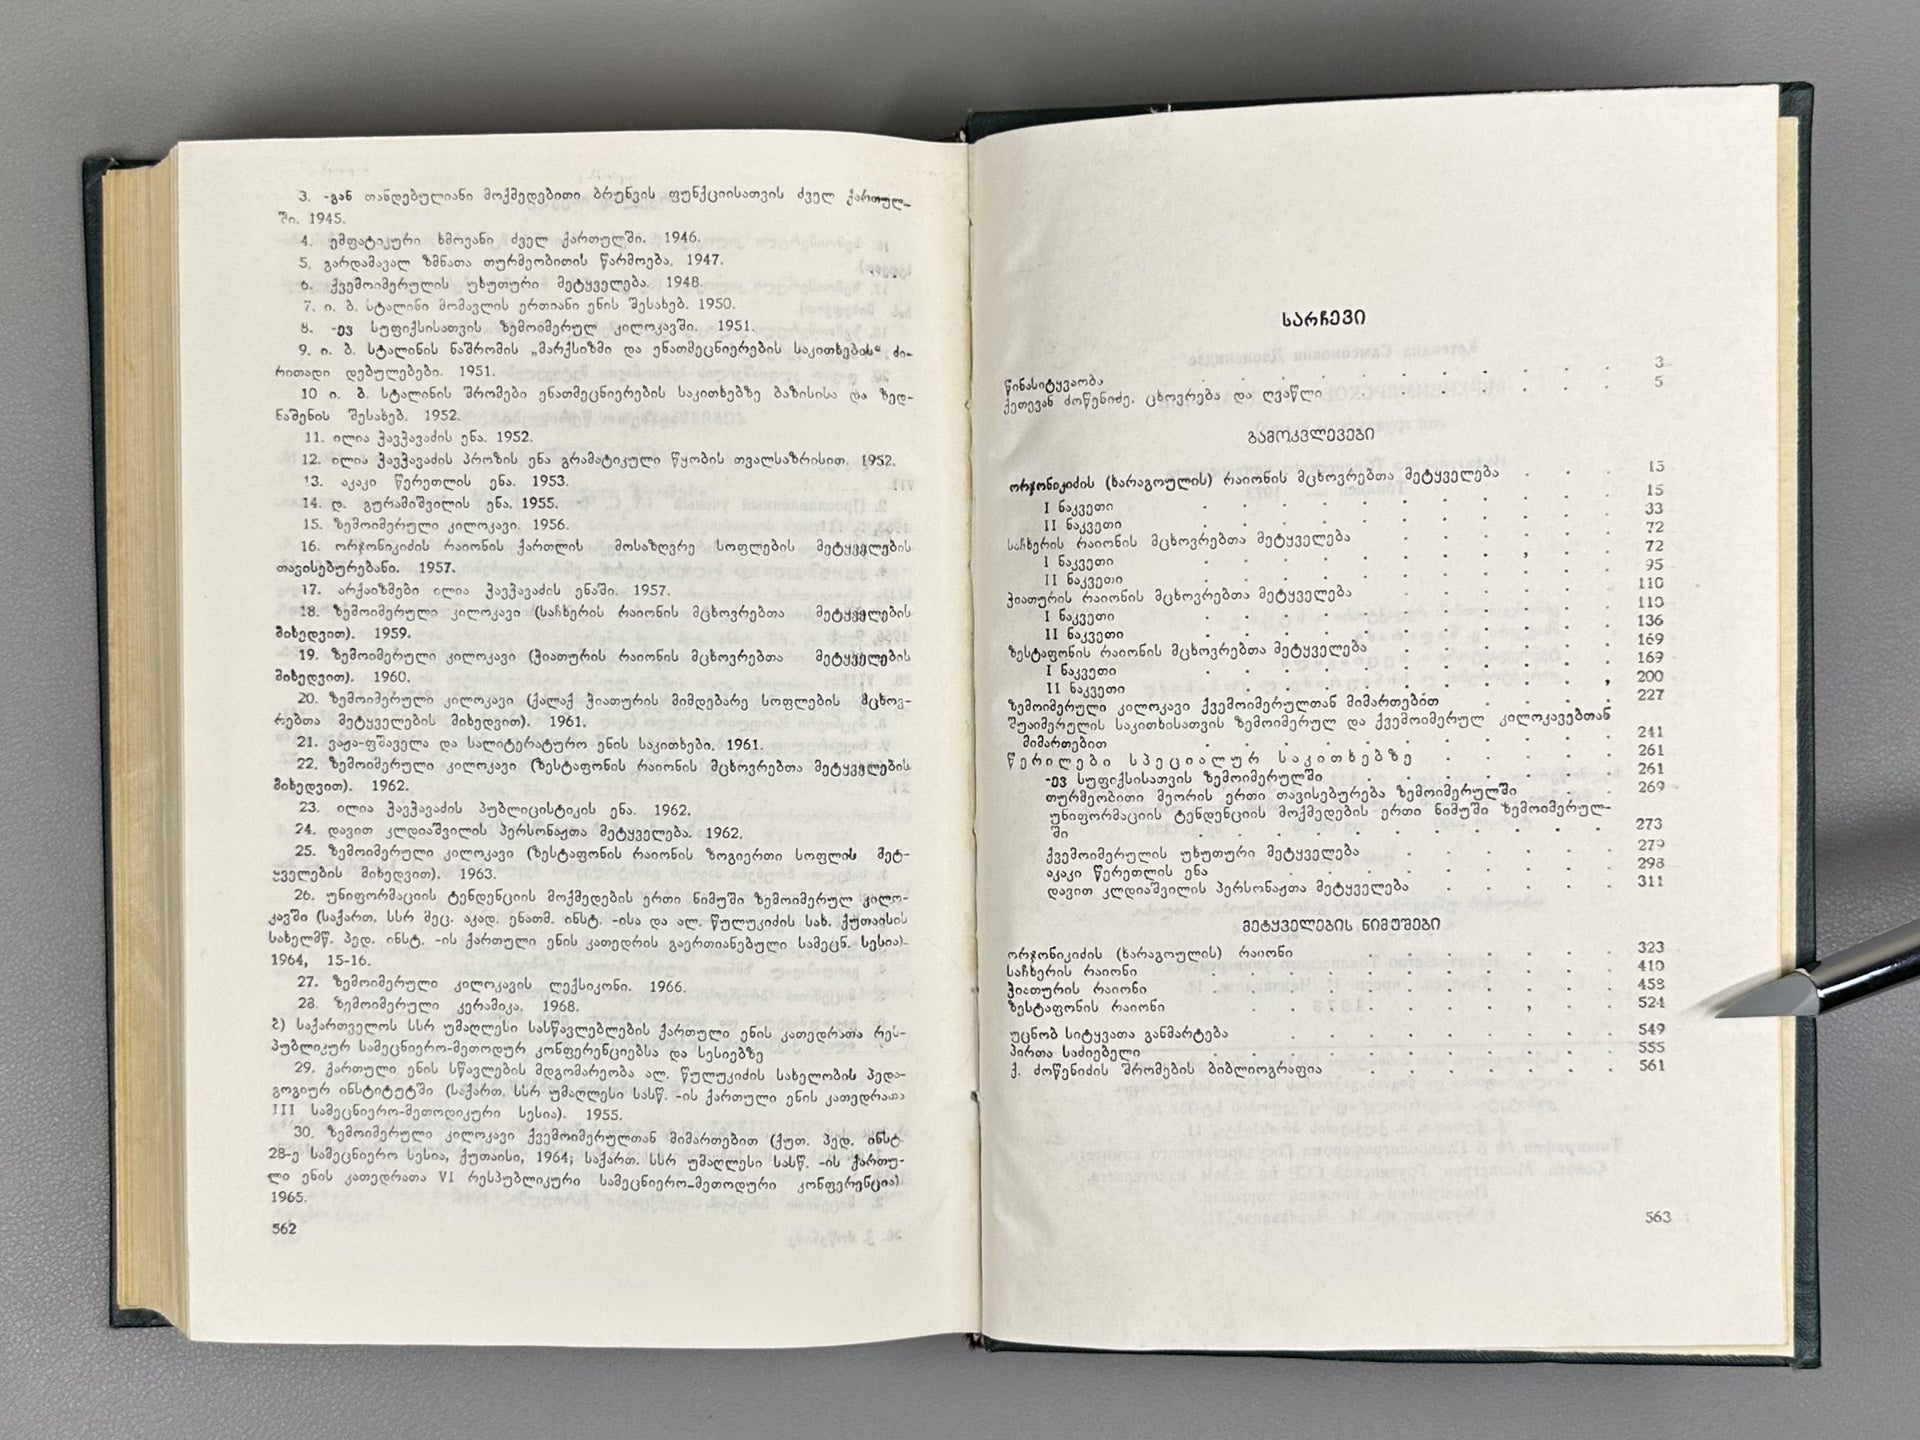 3. -გან თანდებულიანი მოქმედებითი ბრუნვის ფუნქციისათვის ძველ ქართულ-
ში. 1945.
4. ემფატიკური ხმოვანი ძველ ქართულში. 1946.
5. გარდამავალ ზმნათა თურმეობითის წარმოება. 1947.
6. ქვემოიმერულის უხუთური მეტყველება. 1948.
7. ი. ბ. სტალინი მომავლის ერთიანი ენის შესახებ. 1950.
8. -ევ სუფიქსისათვის ზემოიმერულ კილოკავში. 1951.
9. ი. ბ. სტალინის ნაშრომის „მარქსიზმი და ენათმეცნიერების საკითხების“ ძი-
რითადი დებულებები. 1951.
10 ი. ბ. სტალინის შრომები ენათმეცნიერების საკითხებზე ბაზისისა და ზედ-
ნაშენის შესახებ. 1952.
11. ილია ჭავჭავაძის ენა. 1952.
12. ილია ჭავჭავაძის პროზის ენა გრამატიკული წყობის თვალსაზრისით. 1952.
13. აკაკი წერეთლის ენა. 1953.
14. დ. გურამიშვილის ენა. 1955.
15. ზემოიმერული კილოკავი. 1956.
16. ორჯონიკიძის რაიონის ქართლის მოსაზღვრე სოფლების მეტყველების
თავისებურებანი. 1957.
17. არქაიზმები ილია ჭავჭავაძის ენაში. 1957.
18. ზემოიმერული კილოკავი (საჩხერის რაიონის მცხოვრებთა მეტყველების
მიხედვით). 1959.
19. ზემოიმერული კილოკავი (ჭიათურის რაიონის მცხოვრებთა მეტყველების
მიხედვით). 1960.
20. ზემოიმერული კილოკავი (ქალაქ ჭიათურის მიმდებარე სოფლების მცხოვ-
რებთა მეტყველების მიხედვით). 1961.
21. ვაჟა-ფშაველა და სალიტერატურო ენის საკითხები. 1961.
22. ზემოიმერული კილოკავი (ზესტაფონის რაიონის მცხოვრებთა მეტყველების
მიხედვით). 1962.
23. ილია ჭავჭავაძის პუბლიცისტიკის ენა. 1962.
24. დავით კლდიაშვილის პერსონაჟთა მეტყველება. 1962.
25. ზემოიმერული კილოკავი (ზესტაფონის რაიონის ზოგიერთი სოფლის მეტ-
ყველების მიხედვით). 1963.
26. უნიფორმაციის ტენდენციის მოქმედების ერთი ნიმუში ზემოიმერულ კილო-
კავში (საქართ. სსრ მეც. აკად. ენათმ. ინსტ. -ისა და ალ. წულუკიძის სახ. ქუთაისის
სახელმწ. პედ. ინსტ. -ის ქართული ენის კათედრის გაერთიანებული სამეცნ. სესია).
1964, 15-16.
27. ზემოიმერული კილოკავის ლექსიკონი. 1966.
28. ზემოიმერული კერამიკა. 1968.
ბ) საქართველოს სსრ უმაღლესი სასწავლებლების ქართული ენის კათედრათა რეს-
პუბლიკურ სამეცნიერო-მეთოდურ კონფერენციებსა და სესიებზე
29. ქართული ენის სწავლების მდგომარეობა ალ. წულუკიძის სახელობის პედა-
გოგიურ ინსტიტუტში (საქართ. სსრ უმაღლესი სასწ. -ის ქართული ენის კათედრათა
III სამეცნიერო-მეთოდიკური სესია). 1955.
30. ზემოიმერული კილოკავი ქვემოიმერულთან მიმართებით (ქუთ. პედ. ინსტ.
28-ე სამეცნიერო სესია, ქუთაისი, 1964; საქართ. სსრ უმაღლესი სასწ. -ის ქართუ-
ლი ენის კათედრათა VI რესპუბლიკური სამეცნიერო-მეთოდური კონფერენცია)
1965.
562
სარჩევი
წინასიტყვაობა . . . . . . . . . . 3
ქეთევან ძოწენიძე. ცხოვრება და ღვაწლი . . . . . 5
გამოკვლევები
ორჯონიკიძის (ხარაგოულის) რაიონის მცხოვრებთა მეტყველება . . . 15
I ნაკვეთი . . . . . . . . . . 15
II ნაკვეთი . . . . . . . . . . 33
საჩხერის რაიონის მცხოვრებთა მეტყველება . . . . . 72
I ნაკვეთი . . . . . . . . . . 72
II ნაკვეთი . . . . . . . . . . 95
ჭიათურის რაიონის მცხოვრებთა მეტყველება . . . . . 110
I ნაკვეთი . . . . . . . . . . 110
II ნაკვეთი . . . . . . . . . . 136
ზესტაფონის რაიონის მცხოვრებთა მეტყველება . . . . . 169
I ნაკვეთი . . . . . . . . . . 169
II ნაკვეთი . . . . . . . . . . 200
ზემოიმერული კილოკავი ქვემოიმერულთან მიმართებით . . . . 227
შუაიმერულის საკითხისათვის ზემოიმერულ და ქვემოიმერულ კილოკავებთან
მიმართებით . . . . . . . . . . 241
წერილები სპეციალურ საკითხებზე . . . . . 261
-ევ სუფიქსისათვის ზემოიმერულში . . . . . . 261
თურმეობითი მეორის ერთი თავისებურება ზემოიმერულში . . . 269
უნიფორმაციის ტენდენციის მოქმედების ერთი ნიმუში ზემოიმერულ-
ში . . . . . . . . . . 273
ქვემოიმერულის უხუთური მეტყველება . . . . . . 279
აკაკი წერეთლის ენა . . . . . . . . 298
დავით კლდიაშვილის პერსონაჟთა მეტყველება . . . . . 311
მეტყველების ნიმუშები
ორჯონიკიძის (ხარაგოულის) რაიონი . . . . . . . 323
საჩხერის რაიონი . . . . . . . . . . 410
ჭიათურის რაიონი . . . . . . . . . . 453
ზესტაფონის რაიონი . . . . . . . . . . 524
უცნობ სიტყვათა განმარტება . . . . . . . . 549
პირთა საძიებელი . . . . . . . . . . 555
ქ. ძოწენიძის შრომების ბიბლიოგრაფია . . . . . . . 561
563